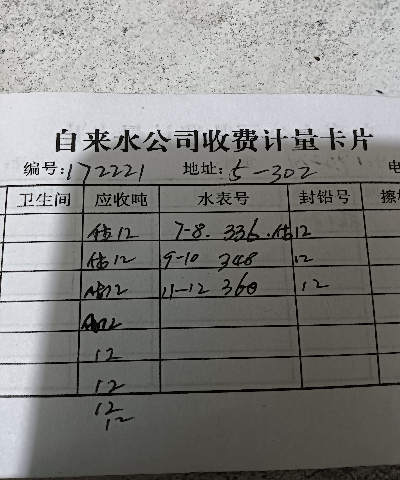 自来水公司收费计量卡片
编号:172221 地址:5-302
卫生间 应收吨 水表号 封铅号
估12 7-8. 336.估12
估12 9-10 348 12
12 11-12 360 12
12
12
12
12
12